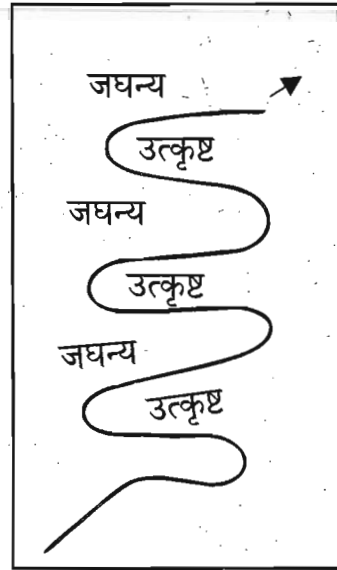 जघन्य
उत्कृष्ट
जघन्य
उत्कृष्ट
जघन्य
उत्कृष्ट